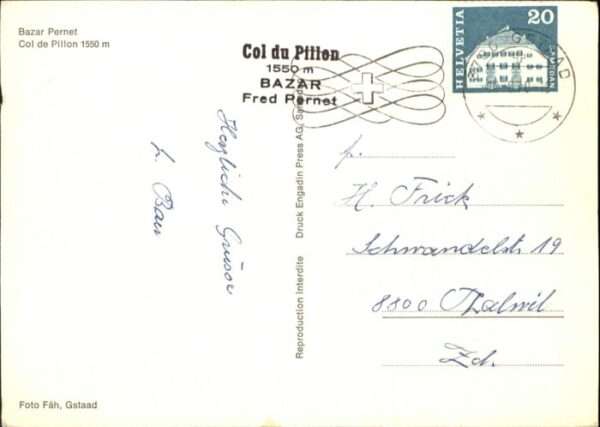 Bazar Pernet
Col de Pillon 1550 m
Col du Pillon
1550 m
BAZAR
Fred Pernet
HELVETIA
20
SAMEDAN
GSTAAD
Herzliche Grüsse
h. Baur
Reproduction interdite Druck Engadin Press AG, Samedan
H. Frick
Schwandelstr 19
8800 Thalwil
Zch.
Foto Fäh, Gstaad